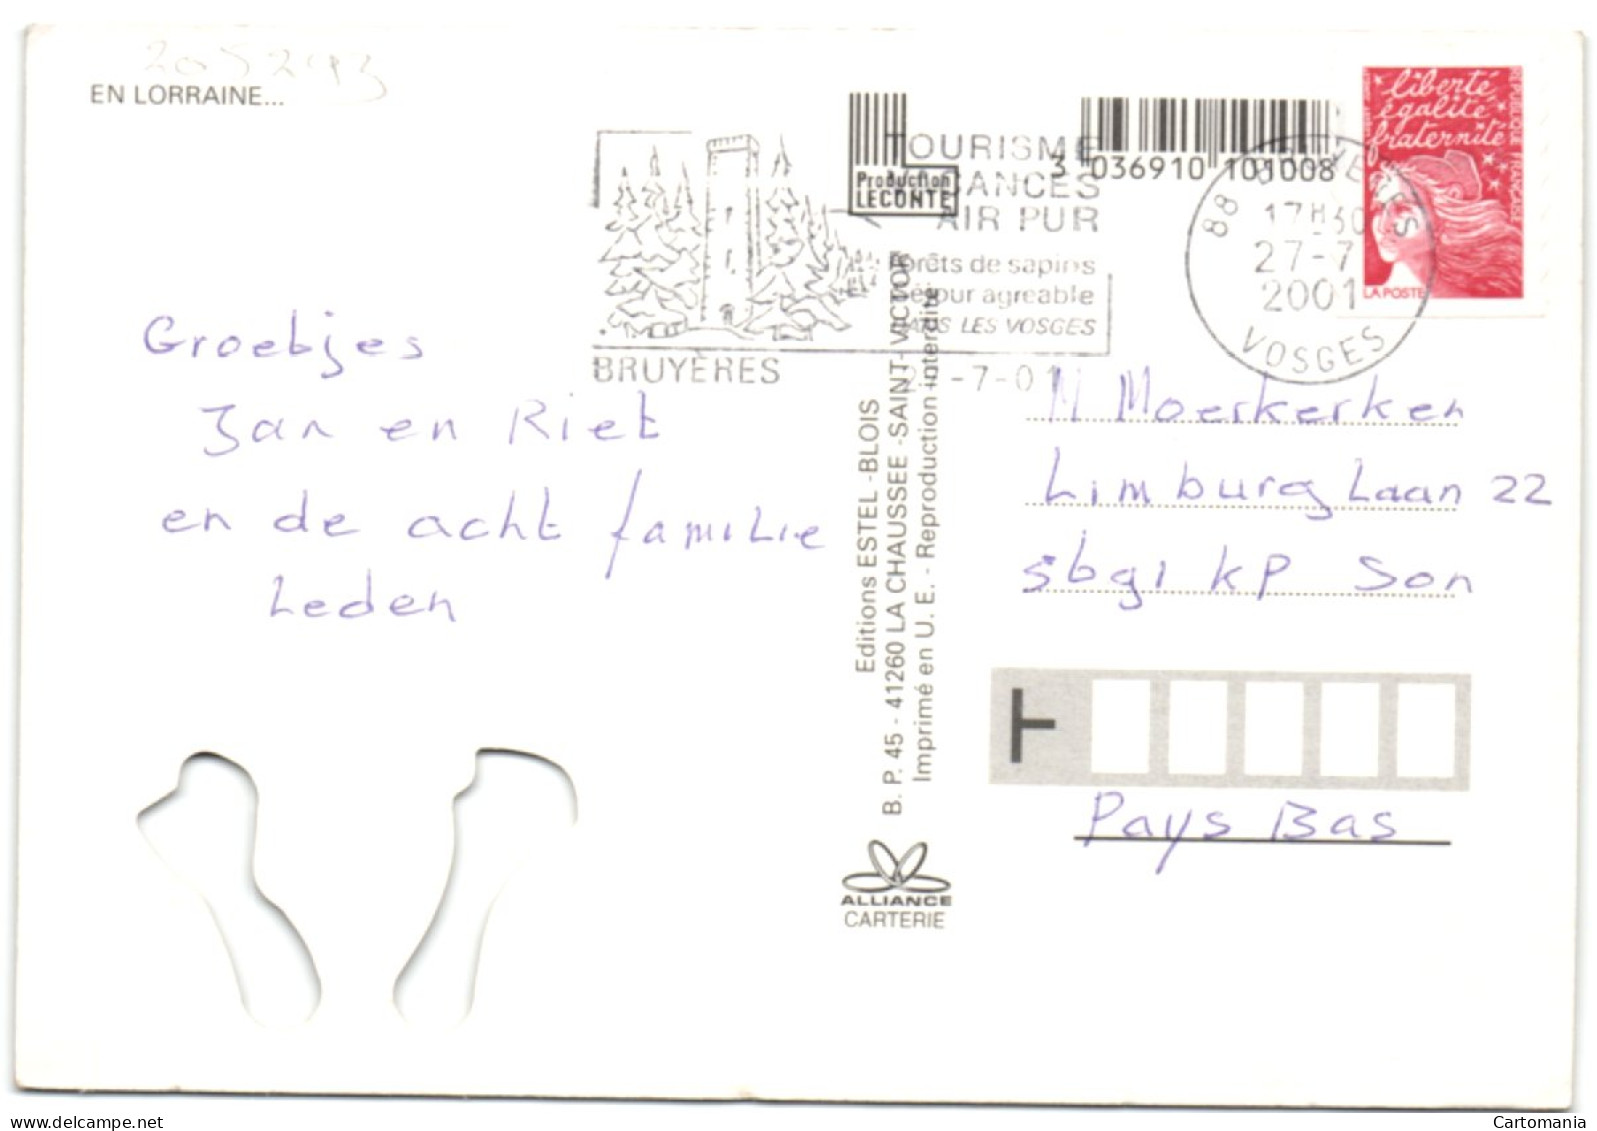 2005293
EN LORRAINE...
Groetjes
Jan en Riet
en de acht familie
Leden
BRUYÈRES
TOURISME
VACANCES
AIR PUR
Forêts de sapins
Séjour agreable
DANS LES VOSGES
-7-01
Production
LECONTE
3 036910 101008
88 BRUYERES
17H30
27-7
2001
VOSGES
liberté
égalité
fraternité
REPUBLIQUE FRANÇAISE
LA POSTE
Editions ESTEL - BLOIS
B. P. 45 - 41260 LA CHAUSSEE - SAINT-VICTOR
Imprimé en U. E. - Reproduction interdite
M Moerkerken
Limburg Laan 22
5691 KP Son
Pays Bas
ALLIANCE
CARTERIE
Cartomania